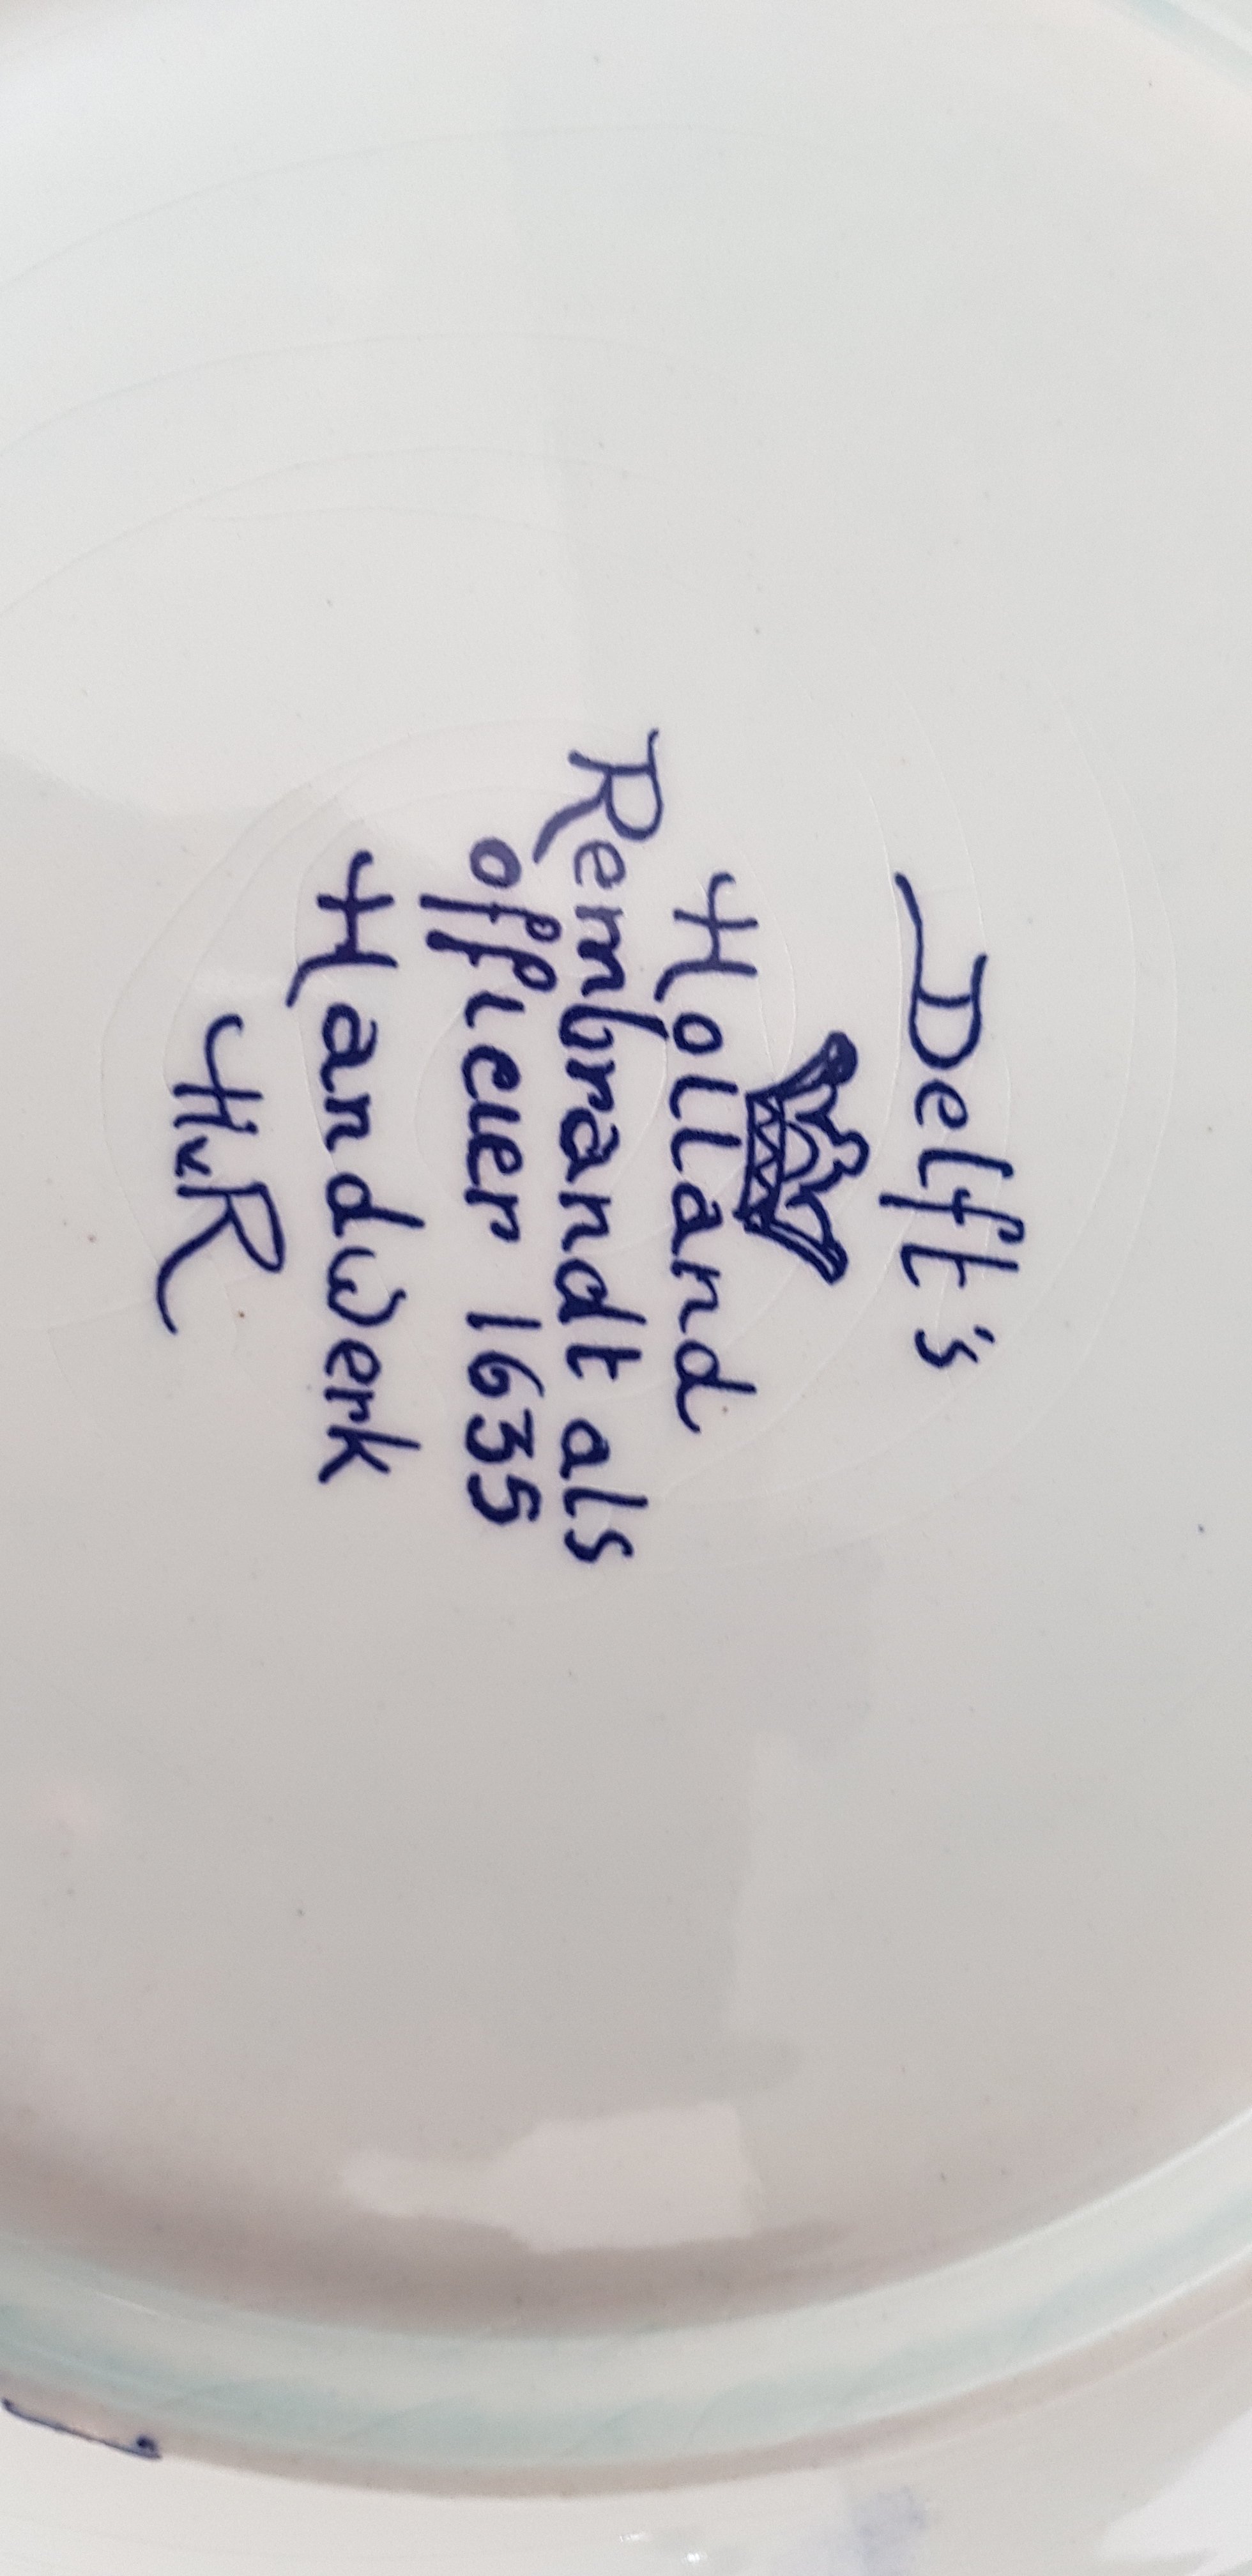 Delft's
Holland
Rembrandt als
officier 1635
Handwerk
HvR